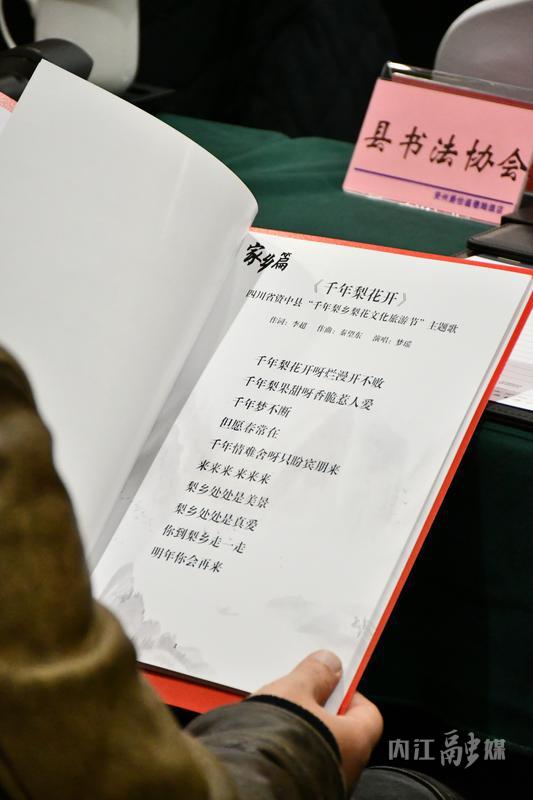 县书法协会
家乡篇
《千年梨花开》
四川省资中县“千年梨乡梨花文化旅游节”主题歌
作词：李超 作曲：秦望东 演唱：梦瑶
千年梨花开呀烂漫开不败
千年梨果甜呀香脆惹人爱
千年梦不断
但愿春常在
千年情难舍呀只盼宾朋来
来来来来来来
梨乡处处是美景
梨乡处处是真爱
你到梨乡走一走
明年你会再来
内江融媒